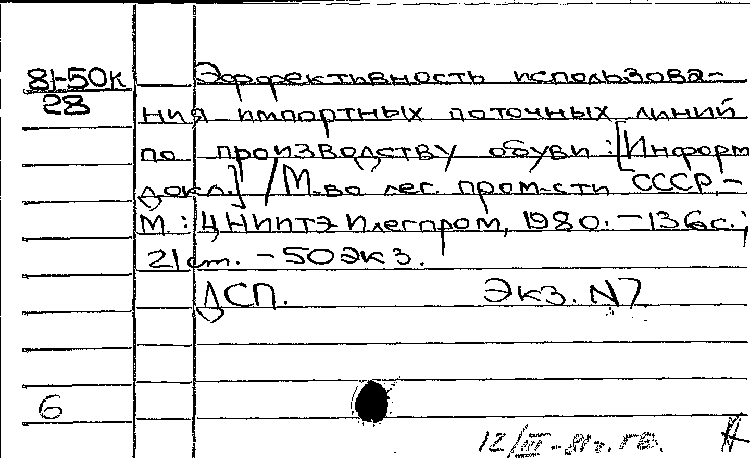 81-50к
28
Эффективность использова-
ния импортных поточных линий
по производству обуви: [Информ
докл.] / М-во лег. пром-сти СССР. –
М.: ЦНИИТЭИлегпром, 1980. – 136с.;
21 см. – 50 экз.
ДСП. Экз. N7
6
12/III-81г.